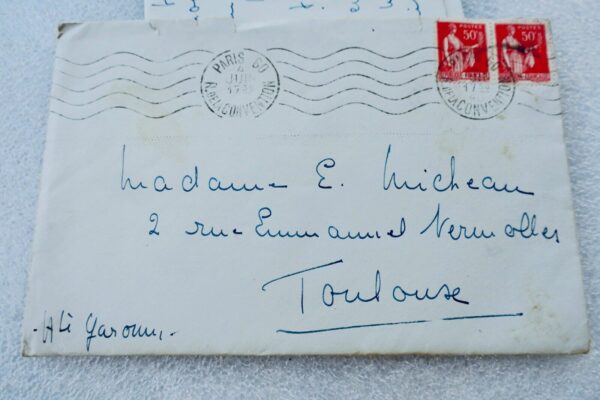 PARIS 60
4
JUIN
R. DE LA CONVENTION
POSTES
50c
POSTES
50c
Madame E. Micheau
2 rue Emmanuel Vermolles
Toulouse
- Hte Garonne -